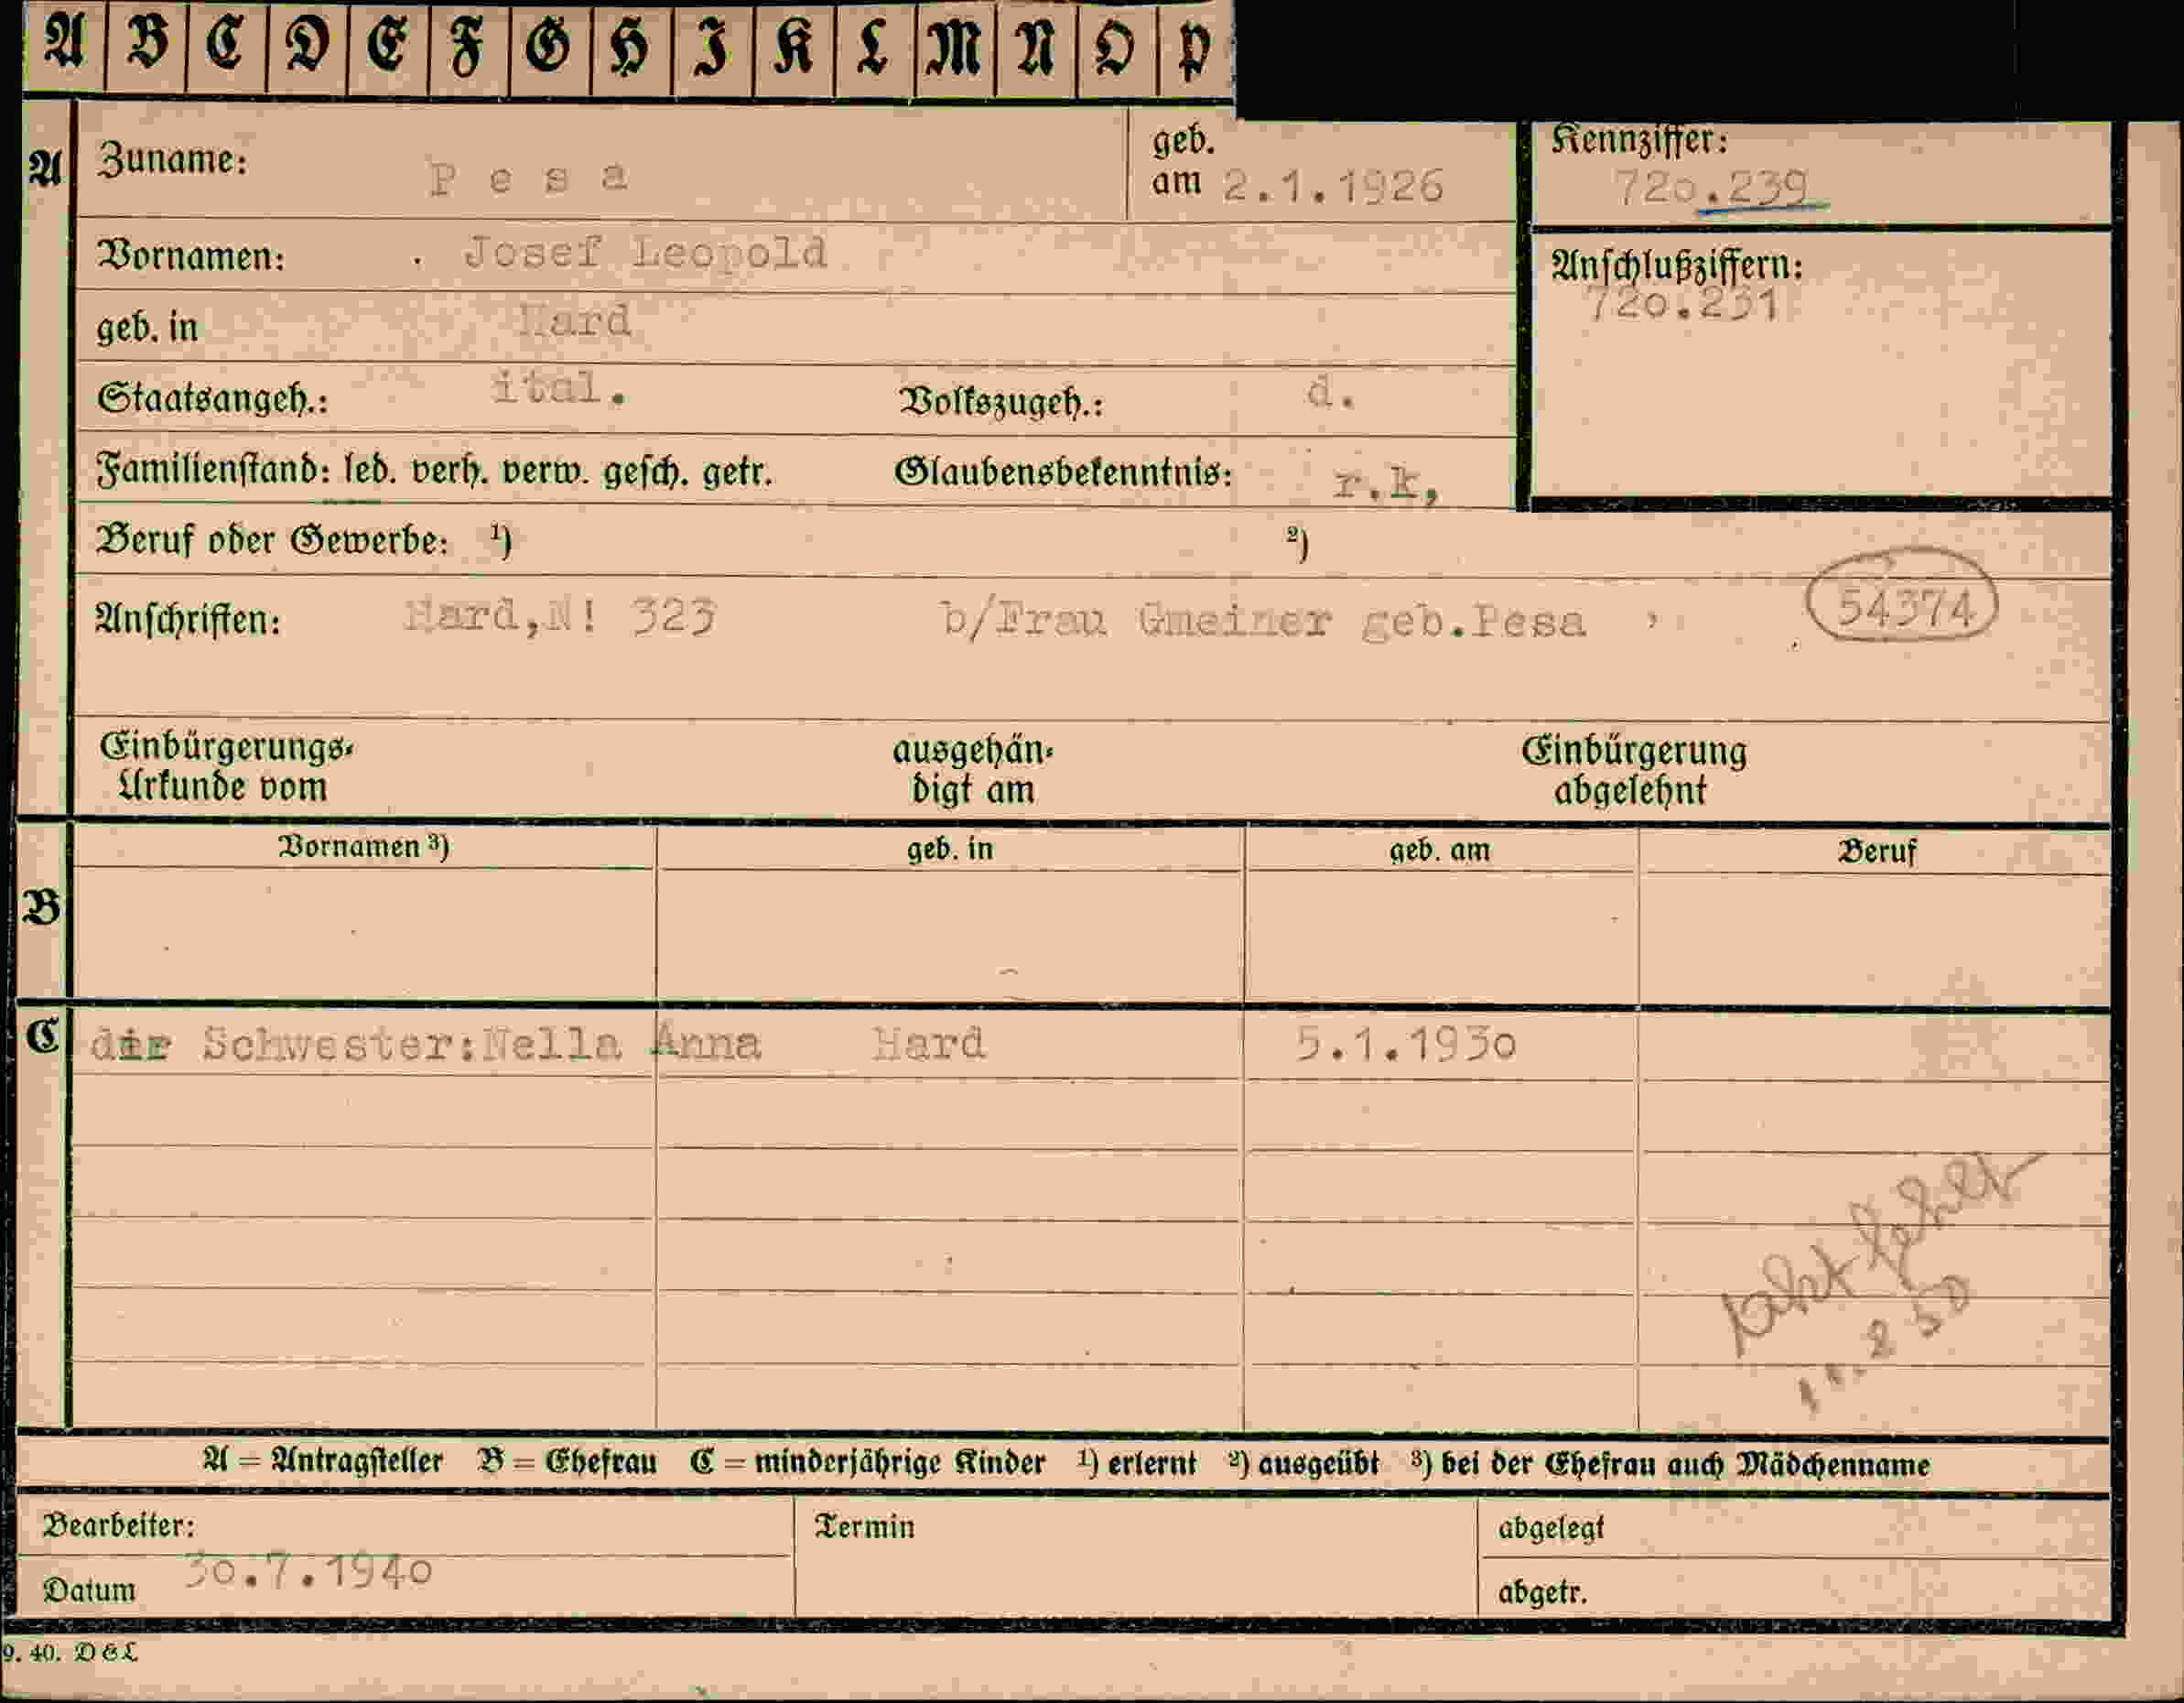 A B C D E F G H I K L M N O P
A Zuname: Pesa geb. am 2.1.1926
Kennziffer: 720.239
Vornamen: Josef Leopold
Anschlußziffern: 720.231
geb. in Hard
Staatsangeh.: ital. Volkszugeh.: d.
Familienstand: led. verh. verw. gesch. getr. Glaubensbekenntnis: r.k,
Beruf oder Gewerbe: ¹) ²)
Anschriften: Hard,N! 323 b/Frau Gmeiner geb.Pesa , 54374
Einbürgerungs- ausgehän- Einbürgerung
Urkunde vom digt am abgelehnt
Vornamen ³) geb. in geb. am Beruf
B
C Schwester:Nella Anna Hard 5.1.1930
A = Antragsteller B = Ehefrau C = minderjährige Kinder ¹) erlernt ²) ausgeübt ³) bei der Ehefrau auch Mädchenname
Bearbeiter: Termin abgelegt
Datum 30.7.1940 abgetr.
9. 40. D&L